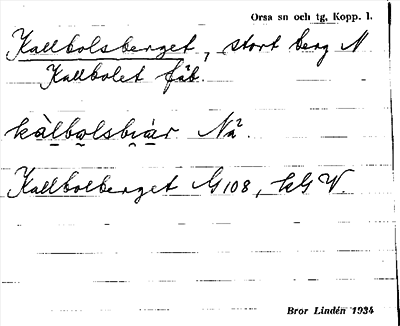 Orsa sn och tg, Kopp. l.
Kallbolsberget, stort berg N
Kallbolet fäb.
kàlbo̯lsbi̯àr Nä².
Kallbolberget G108, kG V.
Bror Lindén 1934